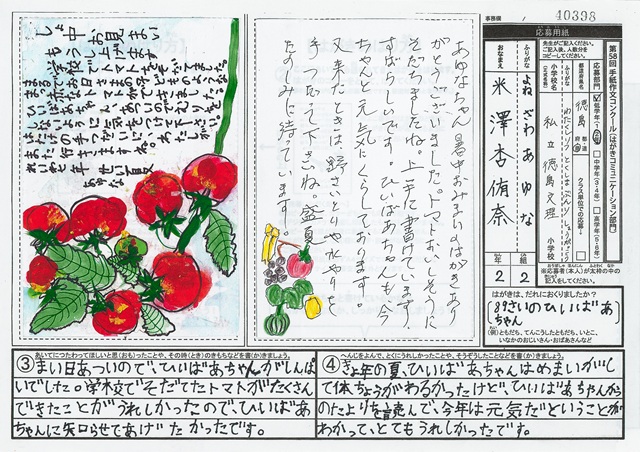 しょ中お見まい
もうし上げます
学校でトマトをそだてました。
れいわ七年 せい夏
あゆな
あゆなちゃん 暑中おみまいのはがきあり
がとうございました。トマトおいしそうに
そだちましたね。上手に書けています。
すばらしいです。ひいばあちゃんも今
ちゃんと元気にくらしております。
又来たときは野さいとりや水やりを
手つだって下さいね。盛夏
たのしみに待っています。
事務欄
40398
応募用紙
先生がご記入後、人数分を
コピーしてください。
第58回 手紙作文コンクール〈はがきコミュニケーション部門〉
応募部門
低学年(1・2年)
中学年(3・4年)
高学年(5・6年)
クラス単位での応募
都道府県名
徳島
都・道
府・県
ふりがな
小学校名
(正式名称)
わたくしりつ とくしまぶんり しょうがっこう
私立 徳島文理 小学校
ふりがな
よねざわ あゆな
おなまえ
米澤杏侑奈
年
2
組
2
※応募者(本人)が太枠の中の
記入をしてください。
はがきは、だれにおくりましたか?
(89さいのひいばあ)
ちゃん
(例)ともだち、てんこうしたともだち、いとこ、
いなかのおじいさん・おばあさんなど
あいてにつたわってほしいと思(おも)ったことや、その時(とき)のきもちなどを書(か)きましょう。
③まい日あついので、ひいばあちゃんがしんぱ
いでした。学校でそだてたトマトがたくさん
できたことがうれしかったので、ひいばあ
ちゃんに知らせてあげたかったです。
へんじをよんで、とくにうれしかったことや、そうぞうしたことなどを書(か)きましょう。
④きょ年の夏、ひいばあちゃんはめまいがし
て体ちょうがわるかったけど、ひいばあちゃんから
のたよりを読んで、今年は元気だということが
わかって、とてもうれしかったです。